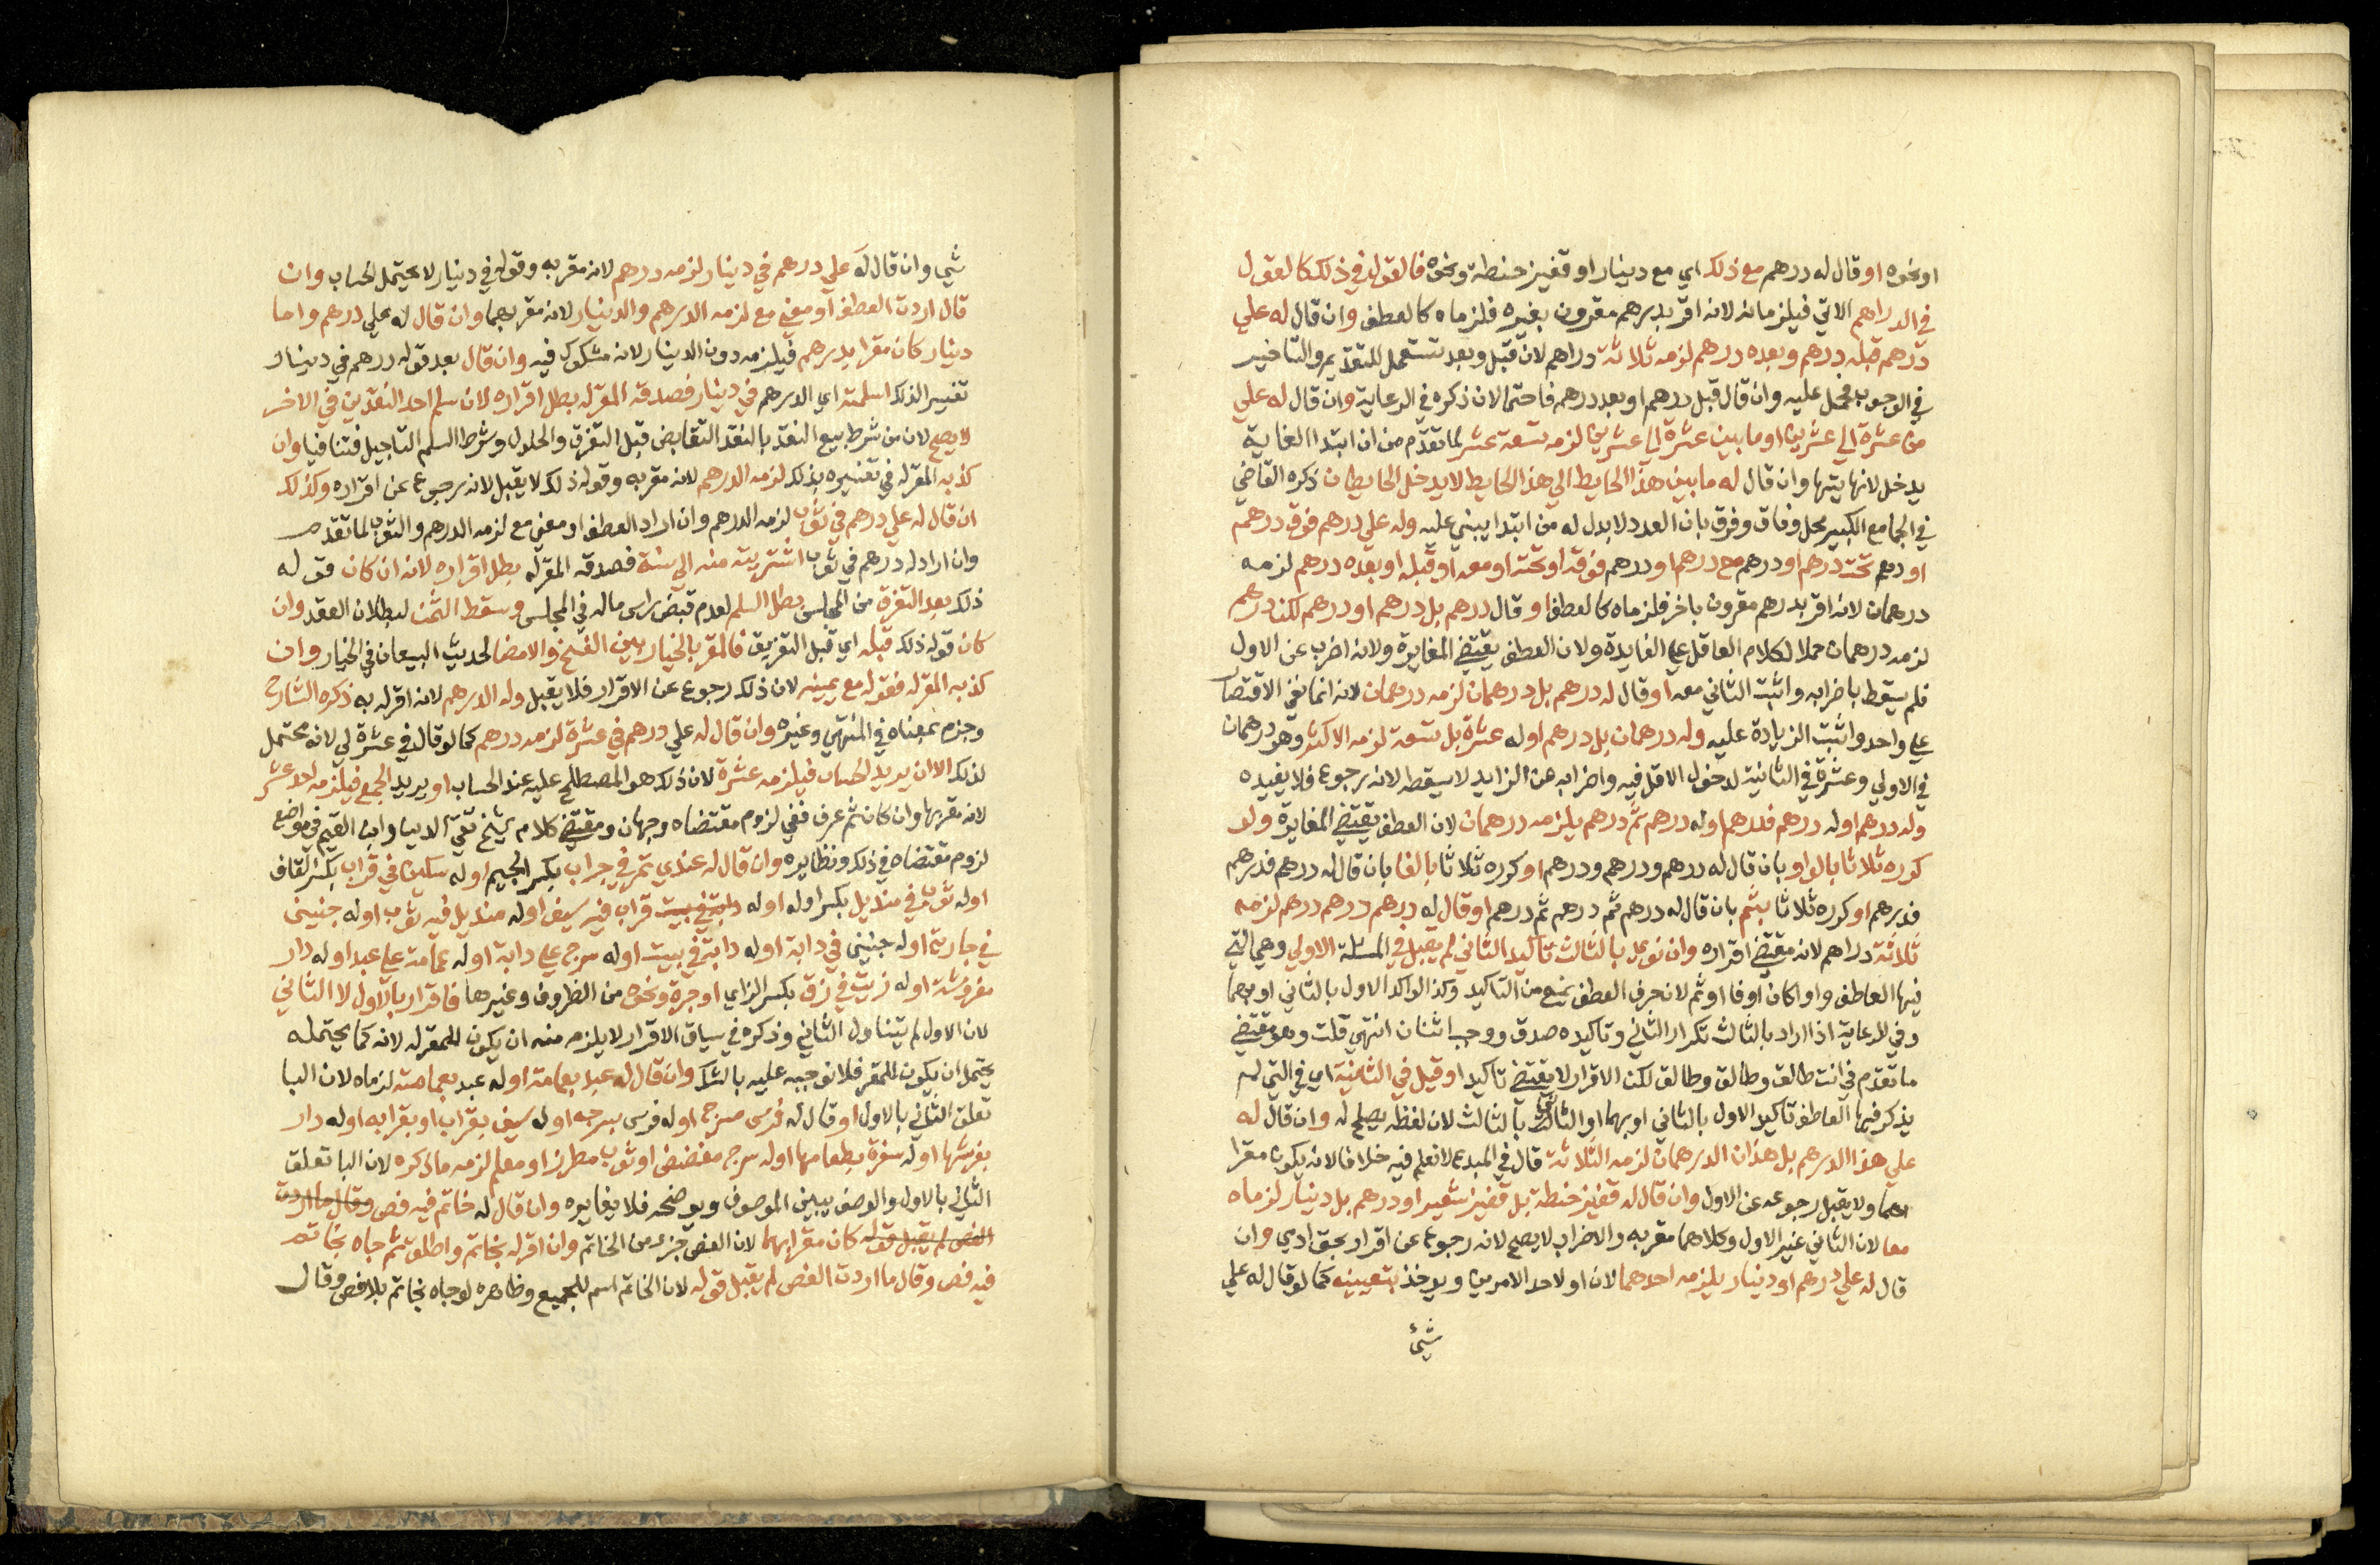 او نحوه او قال له درهم مع ذلك اي مع دينار او قفيز حنطة ونحوه فالقول في ذلك كالقول
في الدراهم الاتي فيلزمانه لانه اقر بدرهم مقرون بغيره فلزماه كالعطف وان قال له علي
درهم قبله درهم وبعده درهم لزمه ثلاثة دراهم لان قبل وبعد تستعمل للتقديم والتاخير
في الوجوب فحمل عليه وان قال قبل درهم او بعد درهم فاحتمالان ذكره في الرعاية وان قال له علي
من عشرة الي عشرين او ما بين عشرة الي عشرين لزمه تسعة عشر لما تقدم من ان ابتدا الغاية
يدخل لانهايتها وان قال له ما بين هذا الحايط الي هذا الحايط لا يدخل الحايطان ذكره القاضي
في الجامع الكبير محل وفاق وفرق بان العدد لا بد له من ابتدا يبني عليه وله علي درهم فوق درهم
او درهم تحت درهم او درهم مع درهم او درهم فوقه او تحته او معه او قبله او بعده درهم لزمه
درهمان لانه اقر بدرهم مقرون باخر فلزماه كالعطف او قال درهم بل درهم او درهم لكن درهم
لزمه درهمان حملا لكلام العاقل علي الفايدة ولان العطف يقتضي المغايرة ولانه اضرب عن الاول
فلم يسقط باضرابه واثبت الثاني معه او قال له درهم بل درهمان لزمه درهمان لانه انما نفي الاقتصار
علي واحد واثبت الزيادة عليه وله درهمان بل درهم او له عشرة بل تسعة لزمه الاكثر وهو درهمان
في الاولي وعشرة في الثانية لدخول الاقل فيه واضرابه عن الزايد لا يسقطه لانه رجوع فلا يفيده
وله درهم او له درهم فدرهم او له درهم ثم درهم يلزمه درهمان لان العطف يقتضي المغايرة ولو
كرره ثلاثا بالواو بان قال له درهم ودرهم ودرهم او كرره ثلاثا بالفا بان قال له درهم فدرهم
فدرهم او كرره ثلاثا بثم بان قال له درهم ثم درهم ثم درهم او قال له درهم درهم درهم لزمه
ثلاثة دراهم لانه مقتضي اقراره وان نوي بالثالث تاكيد الثاني لم يقبل في المسئلة الاولي وهي التي
فيها العاطف واوا كان او فا او ثم لان حرف العطف يمنع من التاكيد وكذا لو اكد الاول بالثاني او بهما
وفي الرعاية اذا اراد بالثالث تكرار الثاني وتاكيده صدق ووجب اثنان انتهي قلت وهو مقتضي
ما تقدم في انت طالق وطالق وطالق لكن الاقرار لا يقتضي تاكيدا وقيل في الثانية اي في التي لم
يذكر فيها العاطف تاكيد الاول بالثاني او بهما او الثاني بالثالث لان لفظه يصلح له وان قال له
علي هذا الدرهم بل هذان الدرهمان لزمه الثلاثة قال في المبدع لا نعلم فيه خلافا لانه يكون مقرا
بهما ولا يقبل رجوعه عن الاول وان قال له قفيز حنطة بل قفيز شعير او درهم بل دينار لزماه
معا لان الثاني غير الاول وكلاهما مقر به والاضراب لا يصح لانه رجوع عن اقرار بحق ادمي وان
قال له علي درهم او دينار يلزمه احدهما لان او لاحد الامرين ويوخذ بتعيينه كما لو قال له علي
شيئ
شي وان قال له علي درهم في دينار لزمه درهم لانه مقر به وقوله في دينار لا يحتمل الحساب وان
قال اردت العطف او معني مع لزمه الدرهم والدينار لانه مقر بهما وان قال له علي درهم واما
دينار كان مقرا بدرهم فيلزمه دون الدينار لانه مشكوك فيه وان قال بعد قوله درهم في دينار
تفسيرا لذلك اسلمته اي الدرهم في دينار فصدقه المقر له بطل اقراره لان سلم احد النقدين في الاخر
لا يصح لان من شرط بيع النقد بالنقد التقابض قبل التفرق والحلول وشرط السلم التاجيل فتنافيا وان
كذبه المقر له في تفسيره بذلك لزمه الدرهم لانه مقر به وقوله ذلك لا يقبل لانه رجوع عن اقراره وكذلك
ان قال له علي درهم في ثوب لزمه الدرهم وان اراد العطف او معني مع لزمه الدرهم والثوب لما تقدم
وان اراد له درهم في ثوب اشتريته منه الي سنة فصدقه المقر له بطل اقراره لانه ان كان قوله
ذلك بعد التفرق من المجلس بطل السلم لعدم قبض راس ماله في المجلس وسقط الثمن لبطلان العقد وان
كان قوله ذلك قبله اي قبل التفريق فالمقر بالخيار بين الفسخ والامضا لحديث البيعان في الخيار وان
كذبه المقر له فقوله مع يمينه لان ذلك رجوع عن الاقرار فلا يقبل وله الدرهم لانه اقر له به ذكره الشارح
وجزم بمعناه في المنتهي وغيره وان قال له علي درهم في عشرة لزمه درهم كما لو قال في عشرة لي لانه محتمل
لذلك الا ان يريد الحساب فيلزمه عشرة لان ذلك هو المصطلح عليه عند الحساب او يريد الجمع فيلزمه احد عشر
لانه مقر بها وان كان ثم عرف ففي لزوم مقتضاه وجهان ومقتضي كلام الشيخ تقي الدين وابن القيم في مواضع
لزوم مقتضاه في ذلك ونظايره وان قال له عندي تمر في جراب بكسر الجيم او له سكين في قراب بكسر القاف
او له ثوب في منديل بكسر اوله او له دابة في بيت قراب فيه سيف او له منديل فيه ثوب او له جنين
في جارية او له جنين في دابة او له دابة في بيت او له سرج علي دابة او له عمامة علي عبد او له دار
مفروشة او له زيت في زق بكسر الزاي او جرة ونحوه من الظروف وغيرها فاقرار بالاول لا الثاني
لان الاول لم يتناول الثاني وذكره في سياق الاقرار لا يلزم منه ان يكون للمقر له لانه كما يحتمله
يحتمل ان يكون للمقر فلا نوجبه عليه بالشك وان قال له عبد بعمامة او له عبد بعمامته لزماه لان البا
تعلق الثاني بالاول او قال له فرس مسرج او له فرس بسرجه او له سيف بقراب او بقرابه او له دار
بفرشها او له سفرة بطعامها او له سرج مفضض او ثوب مطرز او معلم لزمه ما ذكره لان البا تعلق
الثاني بالاول والوصف يبين الموصوف ويوضحه فلا يغايره وان قال له خاتم فيه فص وقال ما اردت
الفص لم يقبل قوله كان مقرا بهما لان الفص جزء من الخاتم وان اقر له بخاتم واطلق ثم جاه بخاتم
فيه فص وقال ما اردت الفص لم يقبل قوله لان الخاتم اسم للجميع وظاهره لو جاه بخاتم بلا فص وقال